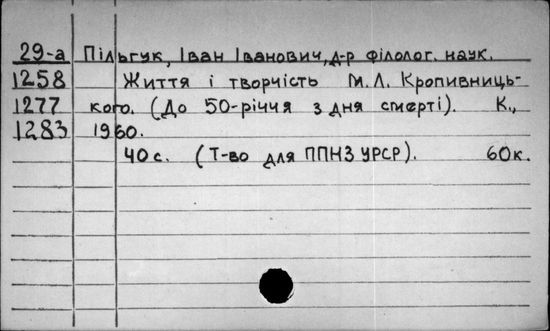 29-а Пільгук, Іван Іванович, д-р філолог. наук.
1258 Життя і творчість М.Л. Кропивниць-
1277 кого. (До 50-річчя з дня смерті). К.,
1283 1960.
40 с. (Т-во для ППНЗ УРСР). 60к.